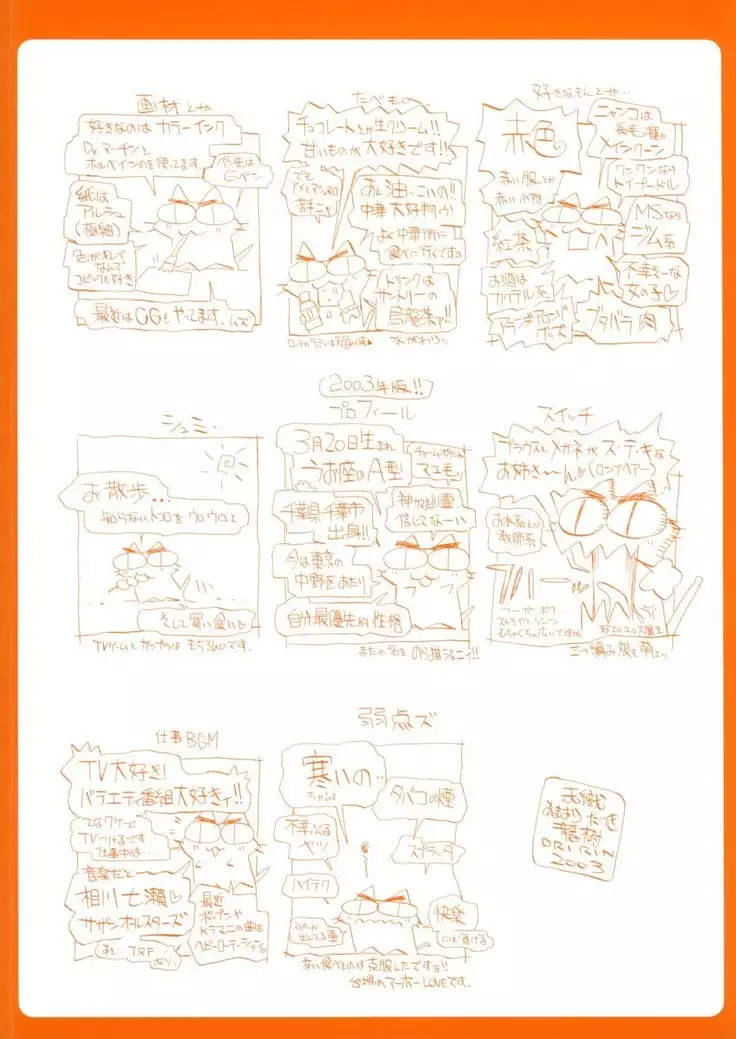 画材とか
好きなのは カラーインク
Dr.マーチンと
ホルベインのを使ってます
ペン先は
Gペン
紙は
アルシュ
(極細)
色がキレイ
なんで
コピックも好き
最近はCGもやってます。ムズ!
たべもの
チョコレートとか生クリーム!!
甘いものが大好きです!!
でも
苦手ニャ
あと油っこいの!!
中華大好物
よく中華街に
食べに行くですョ
ドリンクは
サントリーの
烏龍茶ァ!!
好きなもんとか…
赤色
赤い服とか
赤い小物
紅茶
お酒は
カクテル系
ニャンコは
長毛種
メインクーン
ワンワンなら
トイプードル
MSなら
ジム系
不幸そーな
女の子
ブタバラ肉
シュミ…
お散歩…
知らないトコロをウロウロと
そして買い食い
TVゲームとガンプラは もちろんです。
(2003年版!!)
プロフィール
3月20日生まれ
うお座のA型
マユモ
千葉県千葉市
出身!!
神サマも幽霊も
信じてなーい
今は東京の
中野区あたり
自分最優先的性格
またの名を のら猫ジョニィ!!
スイッチ
ブラウスとメガネがス・テ・キな
お姉さーん(ロングヘアー)
お水系とか
教師系
三つ編み娘も萌エッ
仕事BGM
TV大好き!
バラエティ番組大好きィ!!
TVつけてるです
仕事中は…
音楽だと
相川七瀬
サザンオールスターズ
あと TRF
最近
ポップンや
ドラマニの曲も
ヘビーローテーション
弱点ズ
寒いの…
タバコの煙
スプラッタ
ハイテク
スピード
出してる車
快楽
には負ける
辛い食べものは克服したですョ!!
LOVEです。
龍樹
ORIRIN
2003